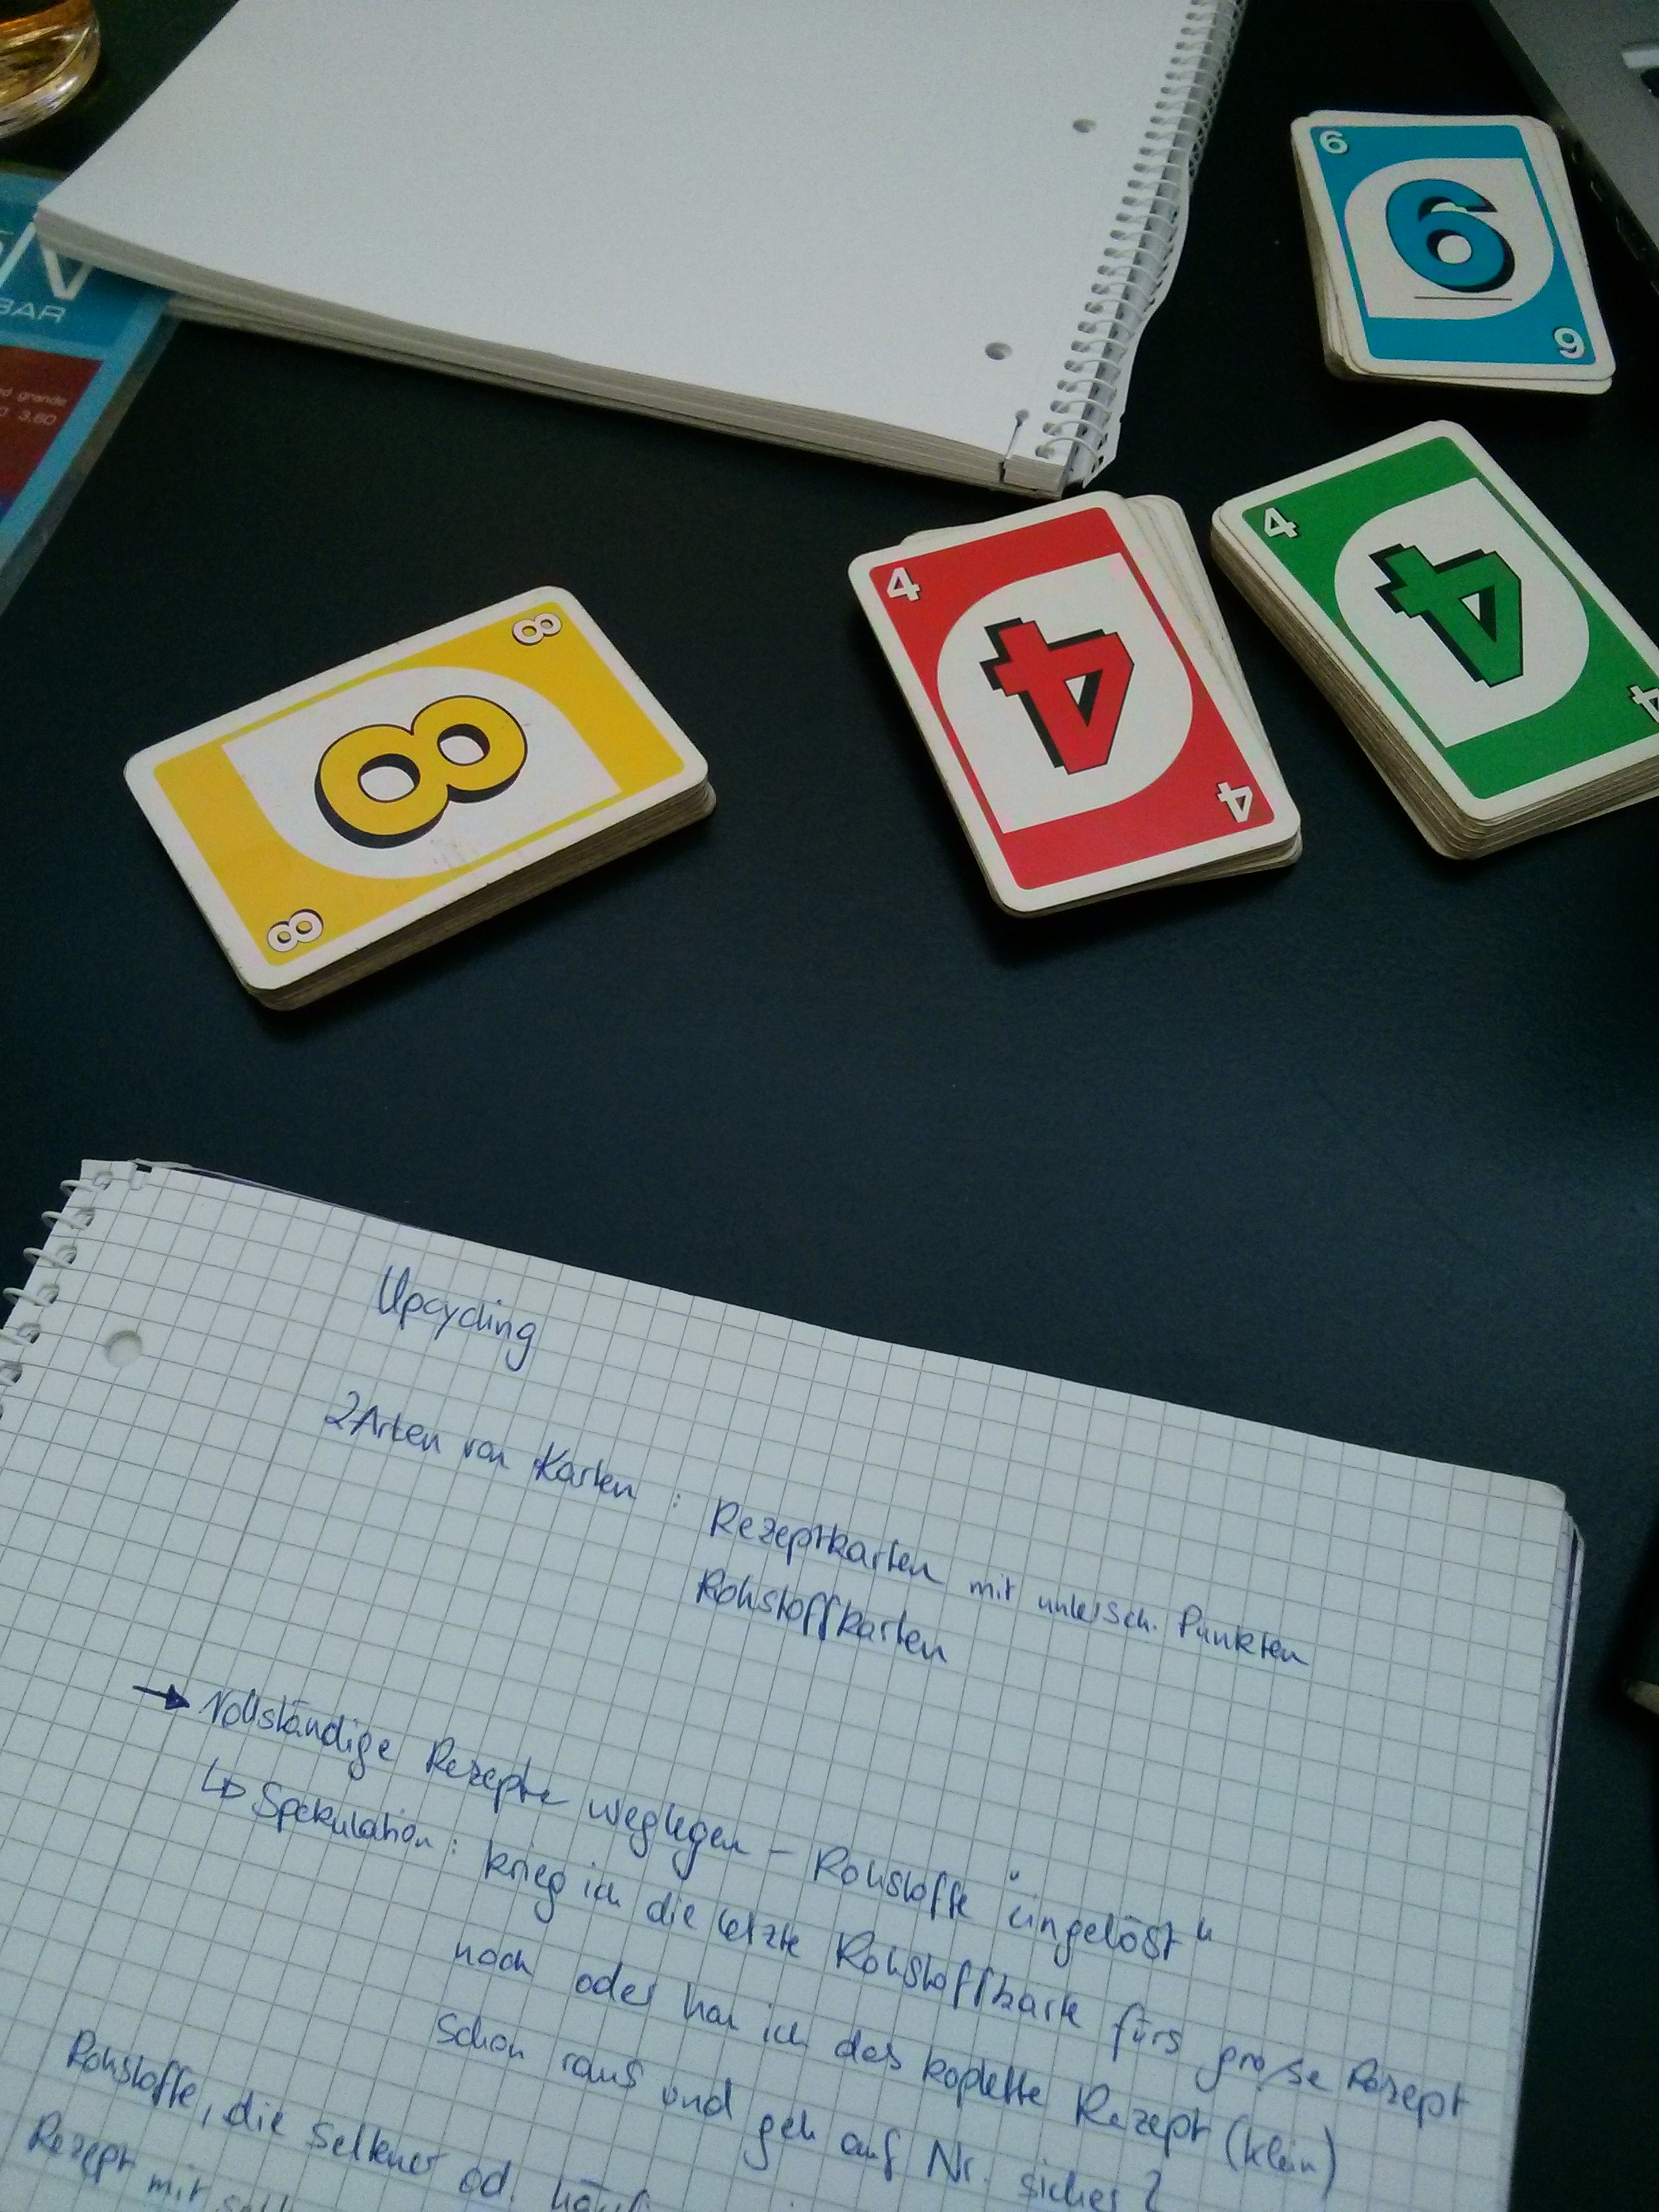 BAR
grande
3.60
6
6
6
4
4
4
4
4
4
8
8
8
Upcycling
2 Arten von Karten : Rezeptkarten mit untersch. Punkten
Rohstoffkarten
→ Vollständige Rezepte weglegen – Rohstoffe "eingelöst"
↳ Spekulation : krieg ich die letzte Rohstoffkarte fürs große Rezept
noch oder hau ich das koplette Rezept (klein)
schon raus und geh auf Nr. sicher?
Rohstoffe, die seltener od.
Rezept mit